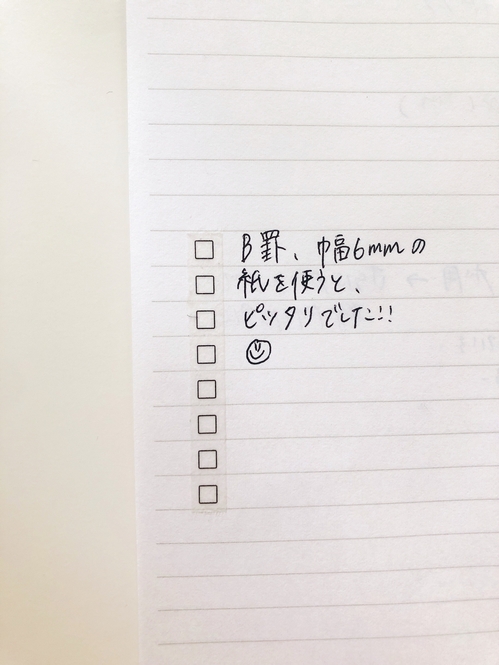 B罫、巾幅6mmの
紙を使うと、
ピッタリでした!!